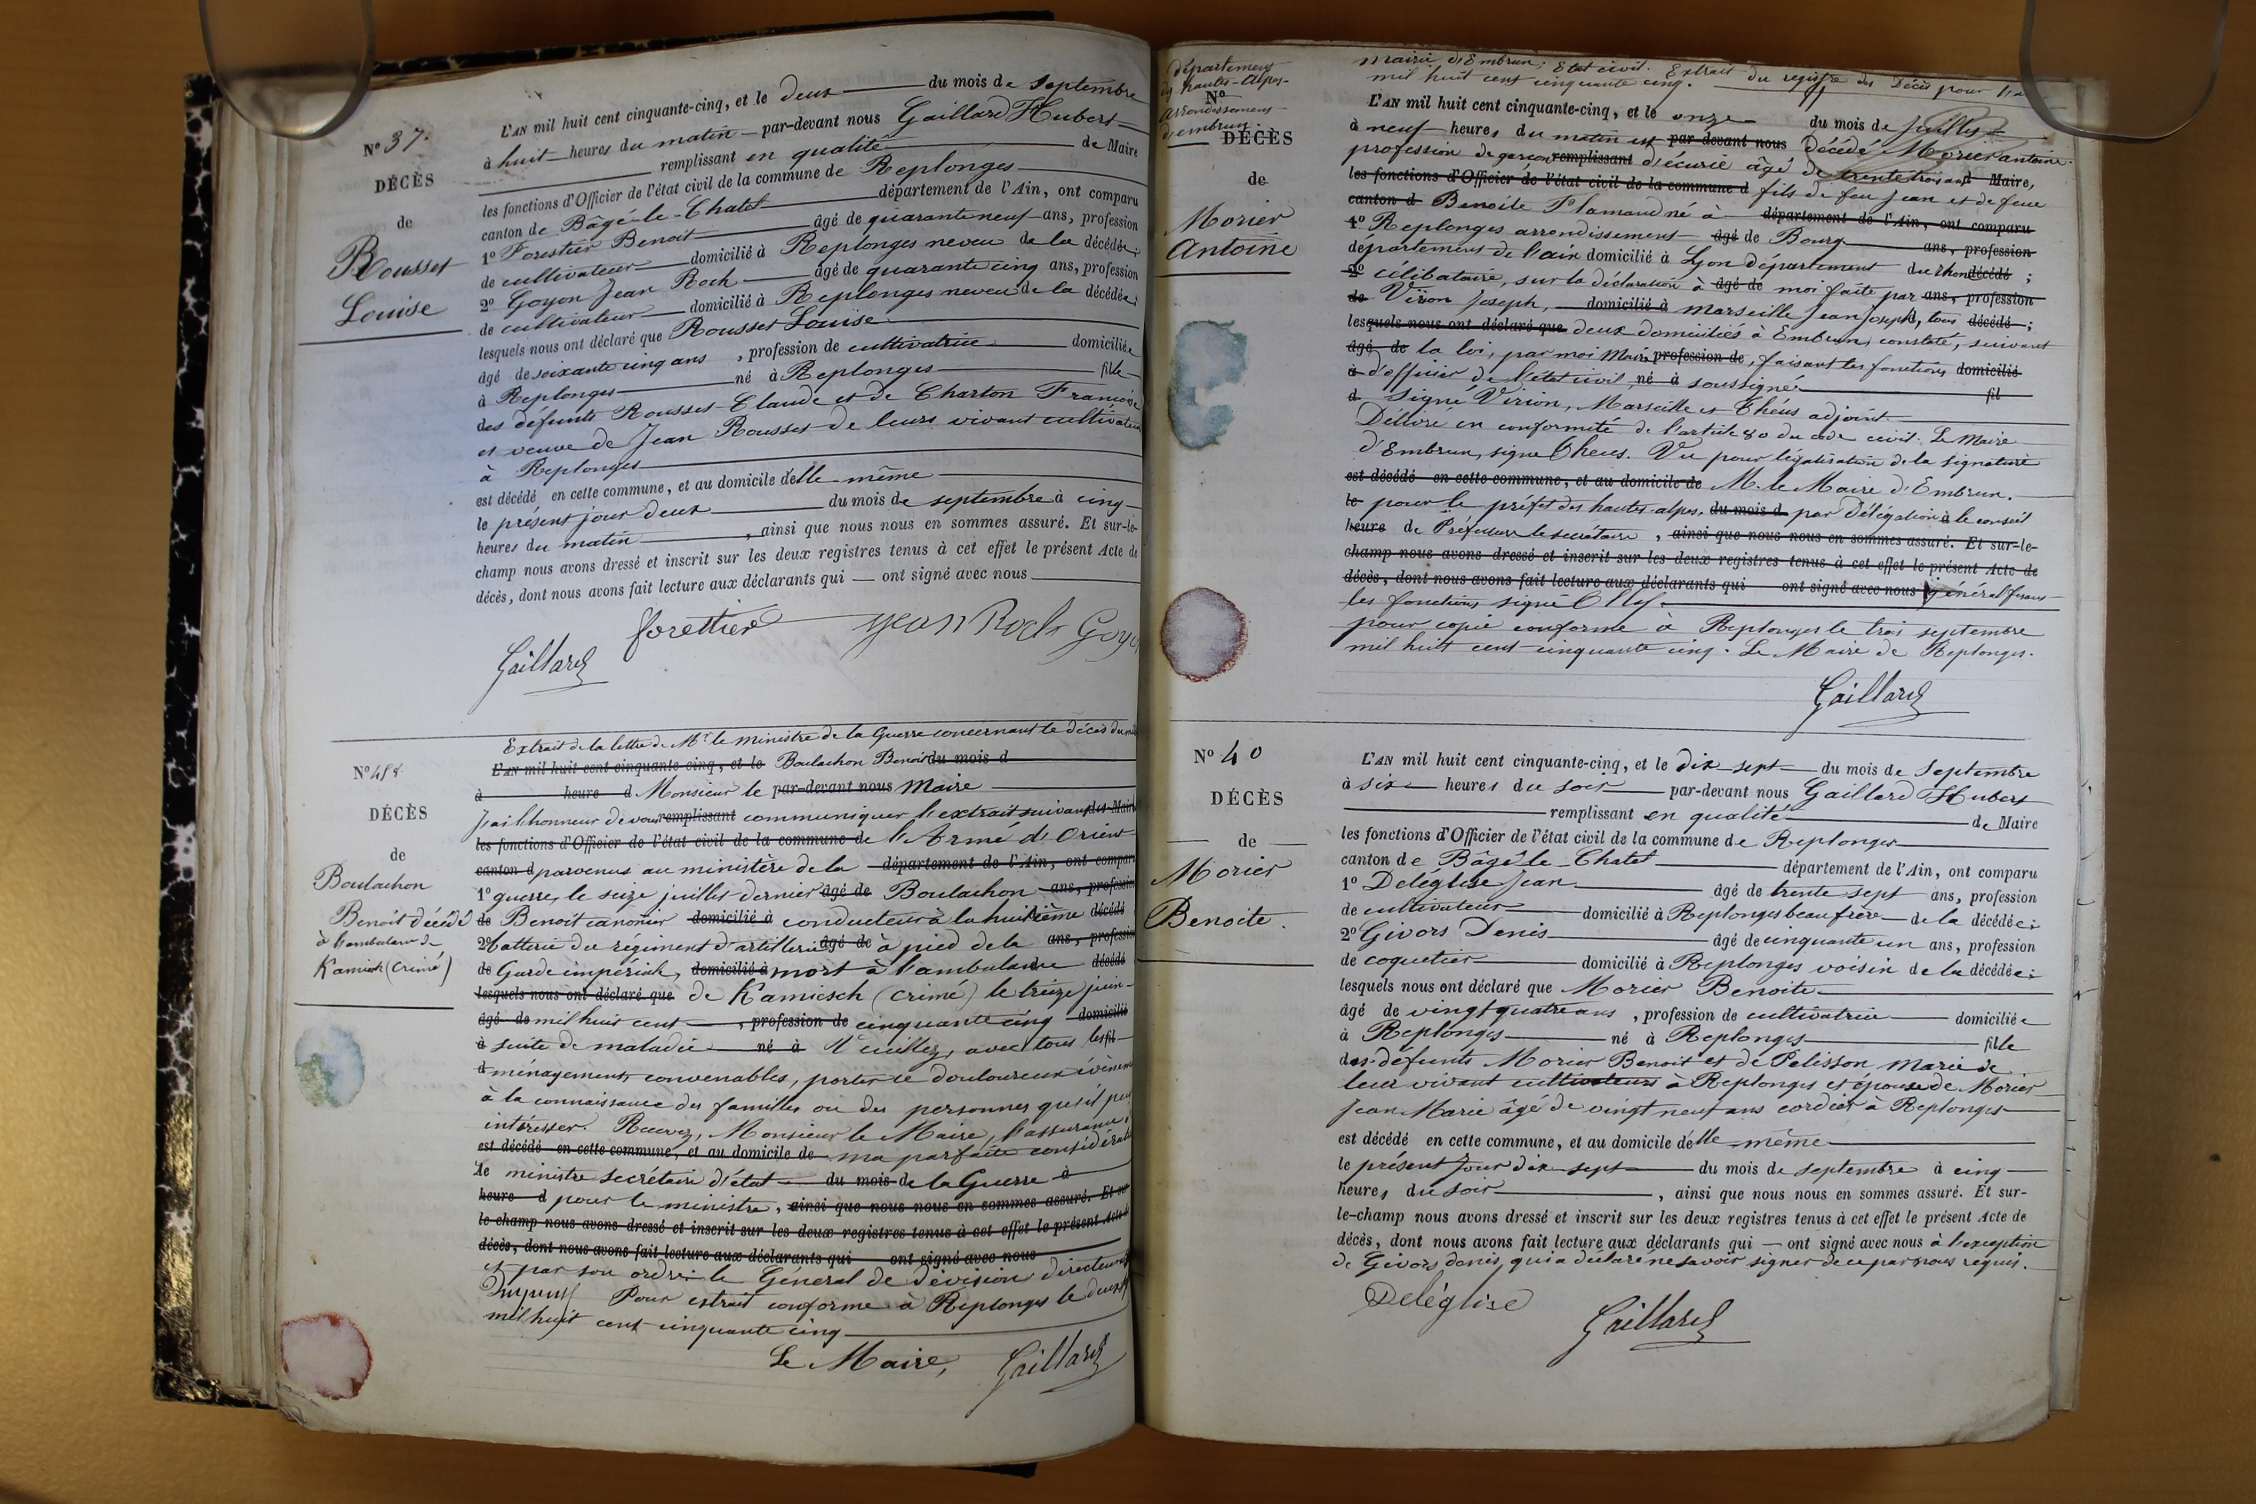 N° 37.
DÉCÈS
de
Rousset
Louise
L'AN mil huit cent cinquante-cinq, et le deux du mois de septembre
à huit heures du matin par-devant nous Gaillard Hubert
remplissant en qualité de Maire
les fonctions d'Officier de l'état civil de la commune de Replonges
canton de Bâgé-le-Chatel département de l'Ain, ont comparu
1° Forestier Benoit âgé de quarante neuf ans, profession
de cultivateur domicilié à Replonges neveu de la décédée;
2° Goyon Jean Roch âgé de quarante cinq ans, profession
de cultivateur domicilié à Replonges neveu de la décédée;
lesquels nous ont déclaré que Rousset Louise
âgé de soixante cinq ans, profession de cultivatrice domiciliée
à Replonges né à Replonges fille
des défunts Rousset Claude et de Charton Françoise
et veuve de Jean Rousset de leurs vivant cultivateurs
à Replonges
est décédé en cette commune, et au domicile d'elle même
le présent jour deux du mois de septembre à cinq
heures du matin, ainsi que nous nous en sommes assuré. Et sur-le-
champ nous avons dressé et inscrit sur les deux registres tenus à cet effet le présent Acte de
décès, dont nous avons fait lecture aux déclarants qui — ont signé avec nous
forettier Jean Roch Goyon
Gaillard
N°
DÉCÈS
de
Boulachon
Benoit décédé
à l'ambulance de
Kamiesh (Crimé)
Extrait de la lettre de Mr le ministre de la Guerre concernant le décès du
L'AN mil huit cent cinquante-cinq, et le Boulachon Benoit du mois d
à heure d Monsieur le par-devant nous Maire
J'ai l'honneur de vous remplissant communiquer l'extrait suivant des Maire
les fonctions d'Officier de l'état civil de la commune de l'Armé d'Orient
canton d parvenus au ministère de la département de l'Ain, ont comparu
1° guerre, le seize juillet dernier âgé de Boulachon ans, profession
de Benoit canonier domicilié à conducteur à la huitième décédé
2° batterie du régiment d'artillerie âgé de à pied de la ans, profession
de Garde impériale, domicilié à mort à l'ambulance décédé
lesquels nous ont déclaré que de Kamiesch (crimé) le treize juin
âgé de mil huit cent, profession de cinquante cinq domicilié
à suite de maladie né à Veuillez, avec tous les fil
d ménagements convenables, porter ce douloureux évènement
à la connaissance des familles ou des personnes qu'il peut
intéresser. Recevez, Monsieur le Maire, l'assurance
est décédé en cette commune, et au domicile de ma parfaite considération
le ministre secrétaire d'état du mois de la Guerre à
heure d pour le ministre, ainsi que nous nous en sommes assuré. Et sur
le champ nous avons dressé et inscrit sur les deux registres tenus à cet effet le présent Acte de
décès, dont nous avons fait lecture aux déclarants qui ont signé avec nous
et par son ordre le Général de division directeur
Pour extrait conforme à Replonges le deux
mil huit cent cinquante cinq
Le Maire, Gaillard
département
des hautes-Alpes
N°
arrondissement
d'embrun.
DÉCÈS
de
Morier
Antoine
mairie d'Embrun; Etat civil. Extrait du registre des Décès pour
mil huit cent cinquante cinq.
L'AN mil huit cent cinquante-cinq, et le onze du mois de Juillet
à neuf heures du matin est par-devant nous Décédé Morier antoine
profession de garçon remplissant d'écurie âgé de trente trois ans d Maire,
les fonctions d'Officier de l'état civil de la commune d fils de feu Jean et de feue
canton d Benoite Flamand né à département de l'Ain, ont comparu
1° Replonges arrondissement âgé de Bourg ans, profession
département de l'ain domicilié à Lyon département du rhone décédé;
2° célibataire, sur la déclaration à âgé de moi faite par ans, profession
de Virion Joseph, domicilié à marseille Jean Joseph, tous décédé;
lesquels nous ont déclaré que deux domiciliés à Embrun, constaté, suivant
âgé de la loi, par moi Maire profession de, faisant les fonctions domicilié
à d'officier de l'état civil, né à soussigné
fil
d Signé Virion, Marseille et Théus adjoint.
Délivré en conformité de l'article 80 du code civil. Le Maire
d'Embrun, signé Theus. Vu pour légalisation de la signature
est décédé en cette commune, et au domicile de M. le Maire d'Embrun.
le pour le préfet des hautes-alpes, du mois d par Délégation à le conseil
heure de Préfecture le secrétaire, ainsi que nous nous en sommes assuré. Et sur-le-
champ nous avons dressé et inscrit sur les deux registres tenus à cet effet le présent Acte de
décès, dont nous avons fait lecture aux déclarants qui ont signé avec nous général faisant
les fonctions signé
pour copie conforme à Replonges le trois septembre
mil huit cent cinquante cinq. Le Maire de Replonges.
Gaillard
N° 40
DÉCÈS
de
Morier
Benoite.
L'AN mil huit cent cinquante-cinq, et le dix sept du mois de Septembre
à six heures du soir par-devant nous Gaillard Hubert
remplissant en qualité de Maire
les fonctions d'Officier de l'état civil de la commune de Replonges
canton de Bâgé-le-Chatel département de l'Ain, ont comparu
1° Deléglise Jean âgé de trente sept ans, profession
de cultivateur domicilié à Replonges beau frère de la décédée;
2° Givors Denis âgé de cinquante un ans, profession
de coquetier domicilié à Replonges voisin de la décédée;
lesquels nous ont déclaré que Morier Benoite
âgé de vingt quatre ans, profession de cultivatrice domiciliée
à Replonges né à Replonges fille
des défunts Morier Benoit et de Pelisson Marie de
leur vivant cultivateurs à Replonges et épouse de Morier
Jean Marie âgé de vingt neuf ans cordier à Replonges
est décédé en cette commune, et au domicile d'elle même
le présent Jour dix sept du mois de septembre à cinq
heures du soir, ainsi que nous nous en sommes assuré. Et sur-
le-champ nous avons dressé et inscrit sur les deux registres tenus à cet effet le présent Acte de
décès, dont nous avons fait lecture aux déclarants qui — ont signé avec nous à l'exception
de Givors denis, qui a déclaré ne savoir signer de ce par nous requis.
Deléglise Gaillard